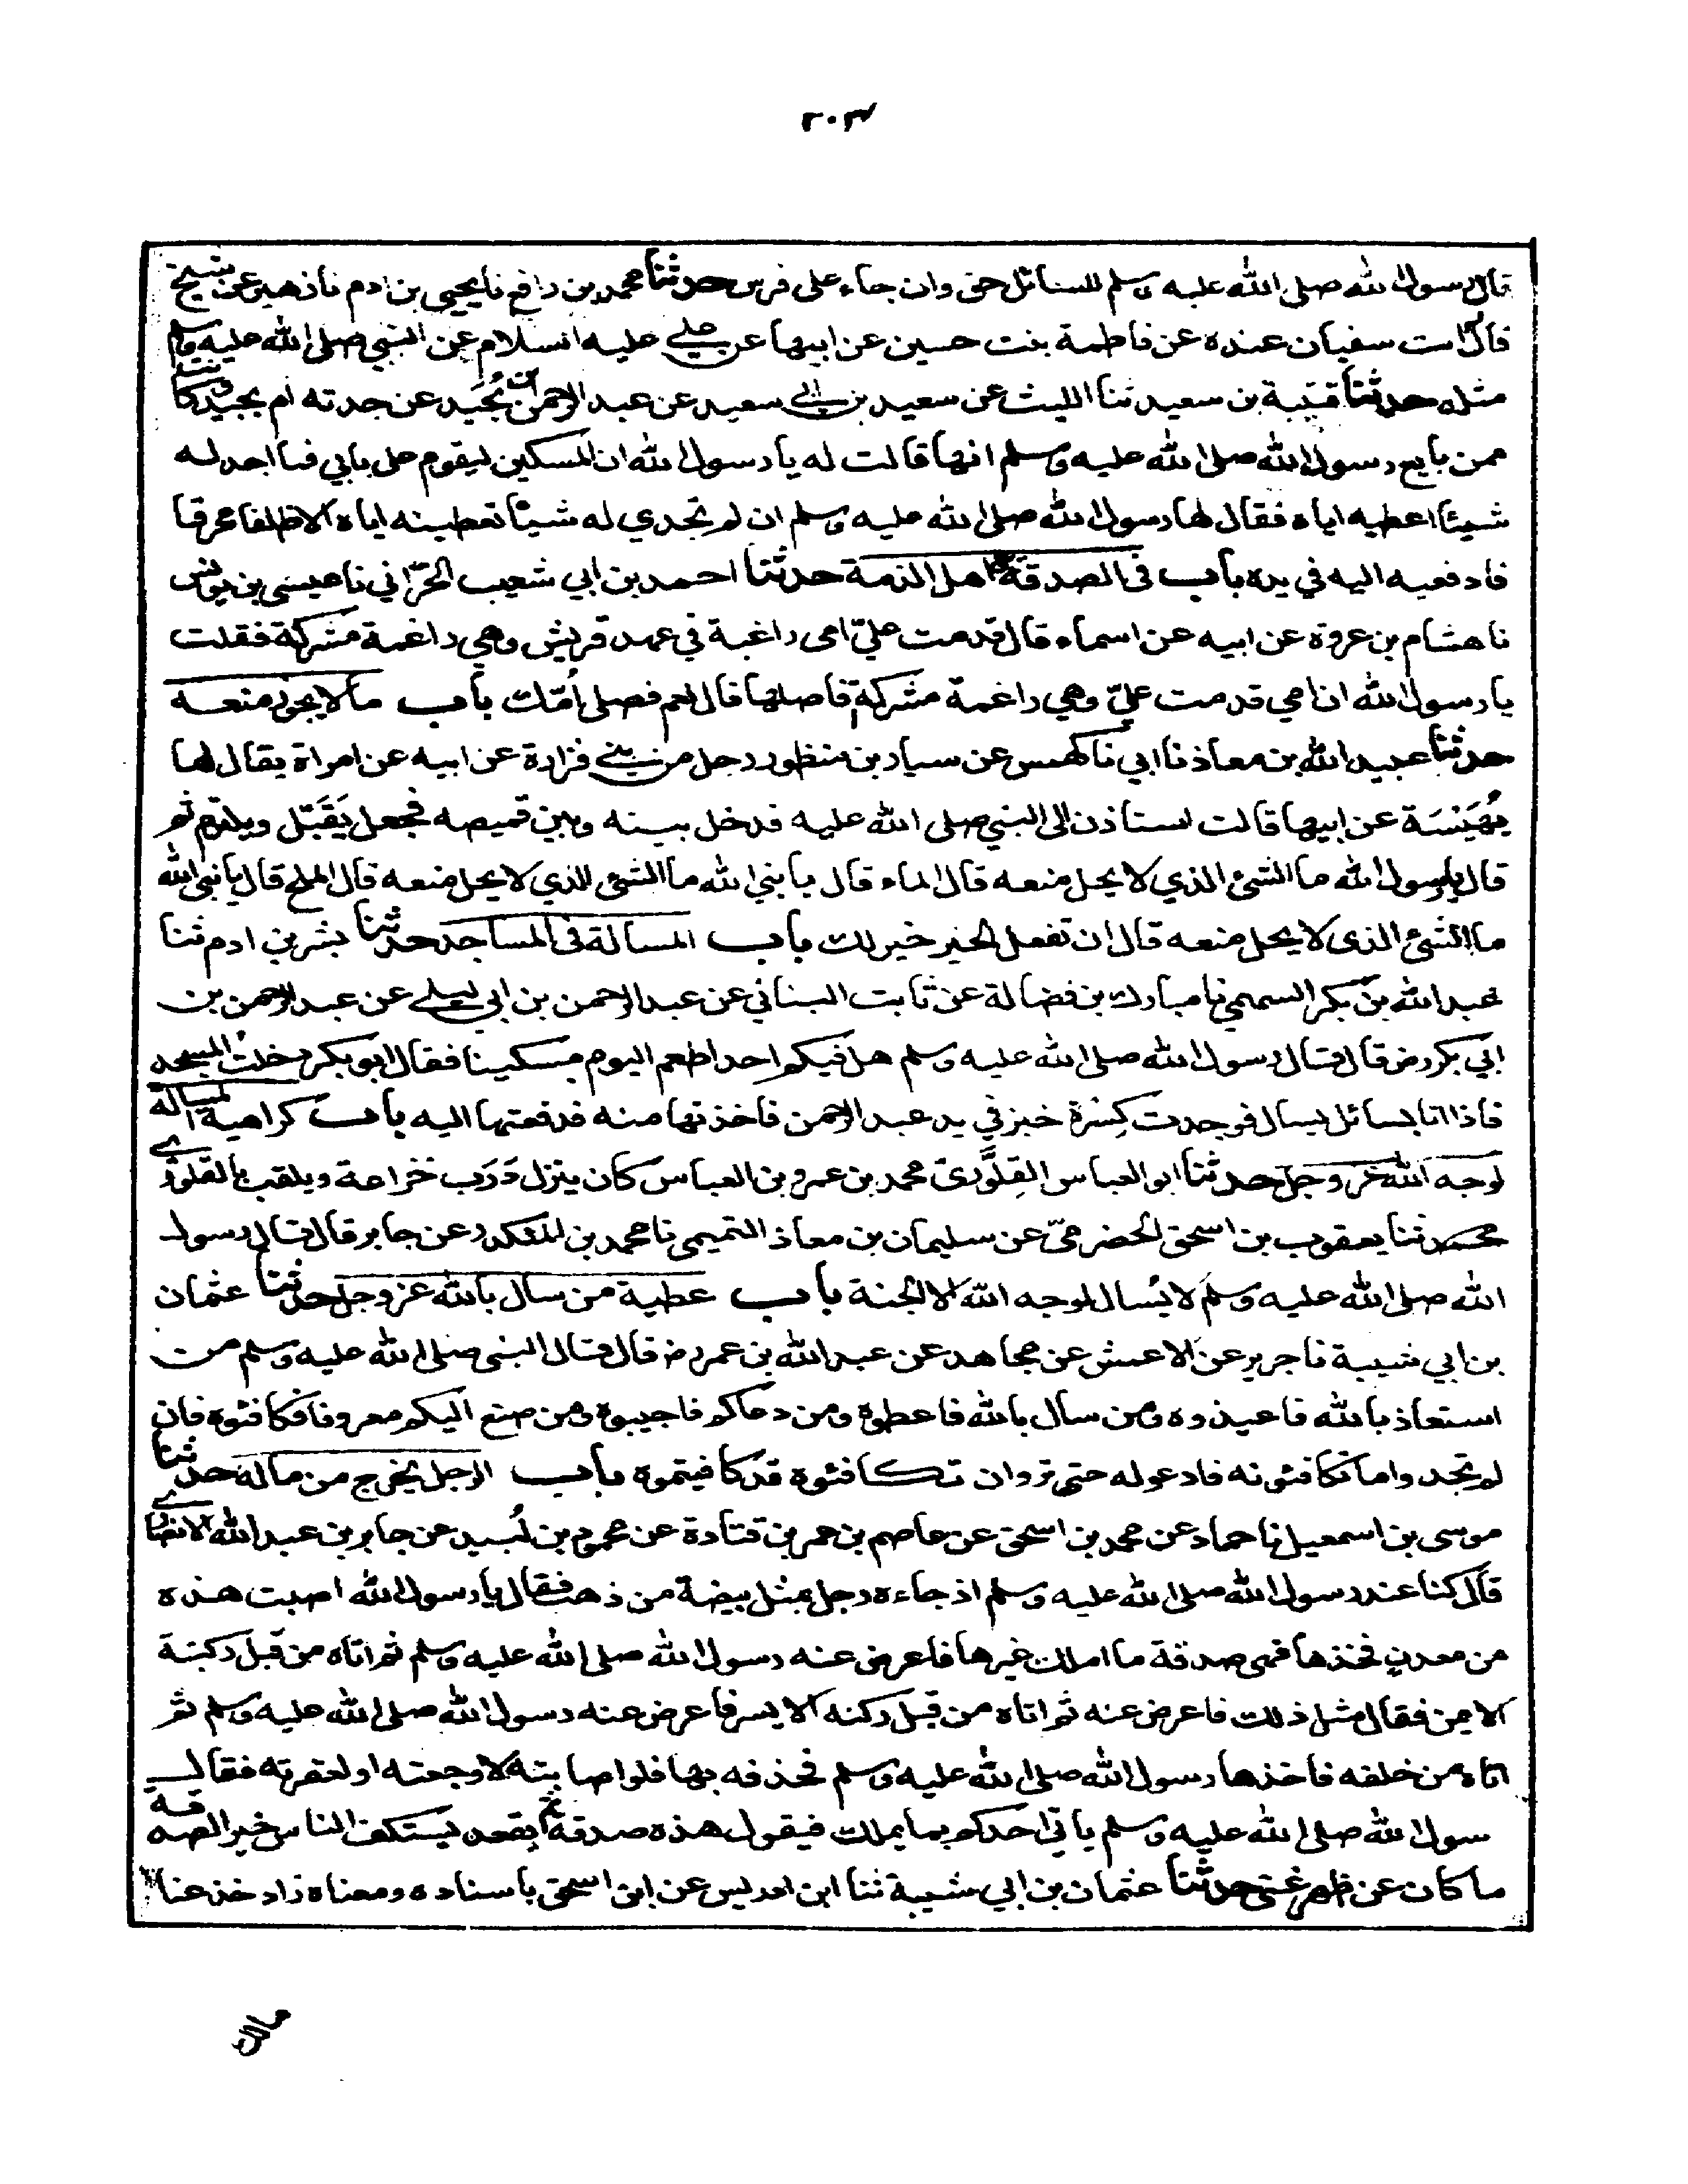 ٢٠٣
قال رسول الله صلى الله عليه وسلم للسائل حق وان جاء على فرس حدثنا محمد بن رافع نا يحيى بن ادم نا زهير عن شيخ
قال رات سفيان عنده عن فاطمة بنت حسين عن ابيها عن علي عليه السلام عن النبي صلى الله عليه وسلم
مثله حدثنا قتيبة بن سعيد ثنا الليث عن سعيد بن ابي سعيد عن عبد الرحمن بن بُجَيد عن جدته ام بجيد وكانت
ممن بايع رسول الله صلى الله عليه وسلم انها قالت له يا رسول الله ان المسكين ليقوم على بابي فما اجد له
شيئا اعطيه اياه فقال لها رسول الله صلى الله عليه وسلم ان لم تجدي له شيئا تعطينه اياه الا ظلفا محرقا
فادفعيه اليه في يده باب في الصدقة على اهل الذمة حدثنا احمد بن ابي شعيب الحرّاني نا عيسى بن يونس
نا هشام بن عروة عن ابيه عن اسماء قال قدمت عليّ امى راغبة في عهد قريش وهي راغمة مشركة فقلت
يا رسول الله ان امي قدمت عليّ وهي راغمة مشركة افاصلها قال نعم فصلى اُمّك باب ما لا يجوز منعه
حدثنا عبيد الله بن معاذ نا ابي نا كهمس عن سيار بن منظور رجل من بني فزارة عن ابيه عن امراة يقال لها
بُهَيسَة عن ابيها قالت استاذن ابي النبي صلى الله عليه فدخل بينه وبين قميصه فجعل يَقَبّل ويلتزم ثم
قال يا رسول الله ما الشئ الذي لا يحل منعه قال الماء قال يا نبي الله ما الشئ الذي لا يحل منعه قال الملح قال يا نبي الله
ما الشئ الذى لا يحل منعه قال ان تفعل الخير خير لك باب المسالة في المساجد حدثنا بشر بن ادم ثنا
عبد الله بن بكر السهمي نا مبارك بن فضالة عن ثابت البناني عن عبد الرحمن بن ابي ليلى عن عبد الرحمن بن
ابي بكر رض قال قال رسول الله صلى الله عليه وسلم هل فيكم احد اطعم اليوم مسكينا فقال ابو بكر دخلتُ المسجد
فاذا انا بسائل يسال فوجدت كِسْرة خبز في يد عبد الرحمن فاخذتها منه فدفعتها اليه باب كراهية المسالة
لوجه الله عز وجل حدثنا ابو العباس القِلَّوْرى محمد بن عمرو بن العباس كان ينزل دَرَب خزاعة ويلقب بالقلورى
حدثنا يعقوب بن اسحق الحضرميّ عن سليمان بن معاذ التميمى نا محمد بن المنكدر عن جابر قال قال رسول
الله صلى الله عليه وسلم لا يُسال لوجه الله الا الجنة باب عطية من سال بالله عز وجل حدثنا عثمان
بن ابي شيبة نا جرير عن الاعمش عن مجاهد عن عبد الله بن عمر رض قال قال النبى صلى الله عليه وسلم من
استعاذ بالله فاعيذوه ومن سأل بالله فاعطوه ومن دعاكم فاجيبوه ومن صنع اليكم معروفا فكافئوه فان
لم تجدوا ما تكافئونه فادعوا له حتى تروا ان تكافئوه قد كافيتموه باب الرجل يخرج من ماله حدثنا
موسى بن اسمعيل نا حماد عن محمد بن اسحق عن عاصم بن عمر بن قتادة عن محمود بن لُبيد عن جابر بن عبد الله الانصارى
قال كنا عند رسول الله صلى الله عليه وسلم اذ جاءه رجل بمثل بيضة من ذهب فقال يا رسول الله اصبت هذه
من معدنٍ فخذها فهى صدقة ما املك غيرها فاعرض عنه رسول الله صلى الله عليه وسلم ثم اتاه من قبل ركنه
الايمن فقال مثل ذلك فاعرض عنه ثم اتاه من قبل ركنه الايسر فاعرض عنه رسول الله صلى الله عليه وسلم ثم
اتاه من خلفه فاخذها رسول الله صلى الله عليه وسلم فحذفه بها فلو اصابته لاوجعته او لعقرته فقال
سول الله صلى الله عليه وسلم ياتي احدكم بما يملك فيقول هذه صدقة ثم يقعد يستكف الناس خير الصدقة
ما كان عن ظهر غنى حدثنا عثمان بن ابي شيبة ثنا ابن ادريس عن ابن اسحق باسناده ومعناه زاد خذ عنا
مالك